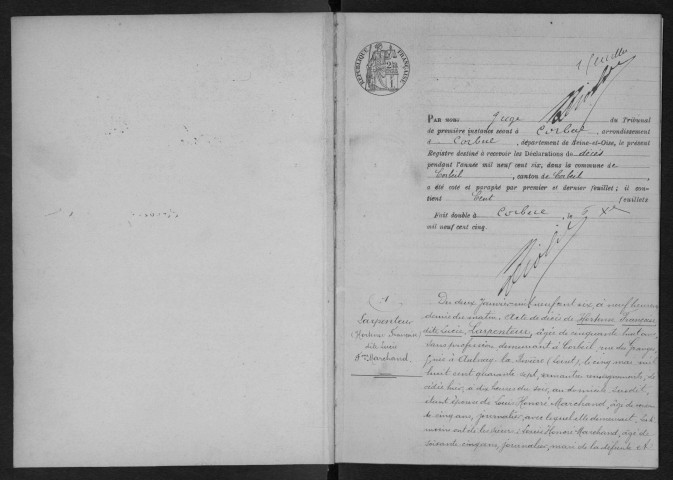 1 feuillet
RÉPUBLIQUE FRANÇAISE
PAR nous Juge du Tribunal
de première instance séant à Corbeil, arrondissement
d Corbeil, département de Seine-et-Oise, le présent
Registre destiné à recevoir les Déclarations de décès
pendant l'année mil neuf cent six, dans la commune de
Corbeil, canton de Corbeil
a été coté et paraphé par premier et dernier feuillet; il con-
tient Cent feuillets
Fait double à Corbeil, le Xbre
mil neuf cent cinq.
1
Carpentier
(Hortense Françoise)
dite Lucie
Fe Marchand
Du deux Janvier mil neuf cent six, à neuf heures
demie du matin. Acte de décès de Hortense Françoise
dite Lucie Carpentier, âgée de cinquante huit ans
sans profession demeurant à Corbeil, rue
née à Aulnay la Rivière (Loiret), le cinq mil
huit cent quarante sept, dé-
cédée hier, à dix heures du soir, au domicile susdit,
étant épouse de Louis Honoré Marchand, âgé de soixante
cinq ans, journalier, avec lequel elle demeurait. Les té-
moins ont été les sieurs Louis Honoré Marchand, âgé de
soixante cinq ans journalier, mari de la défunte et